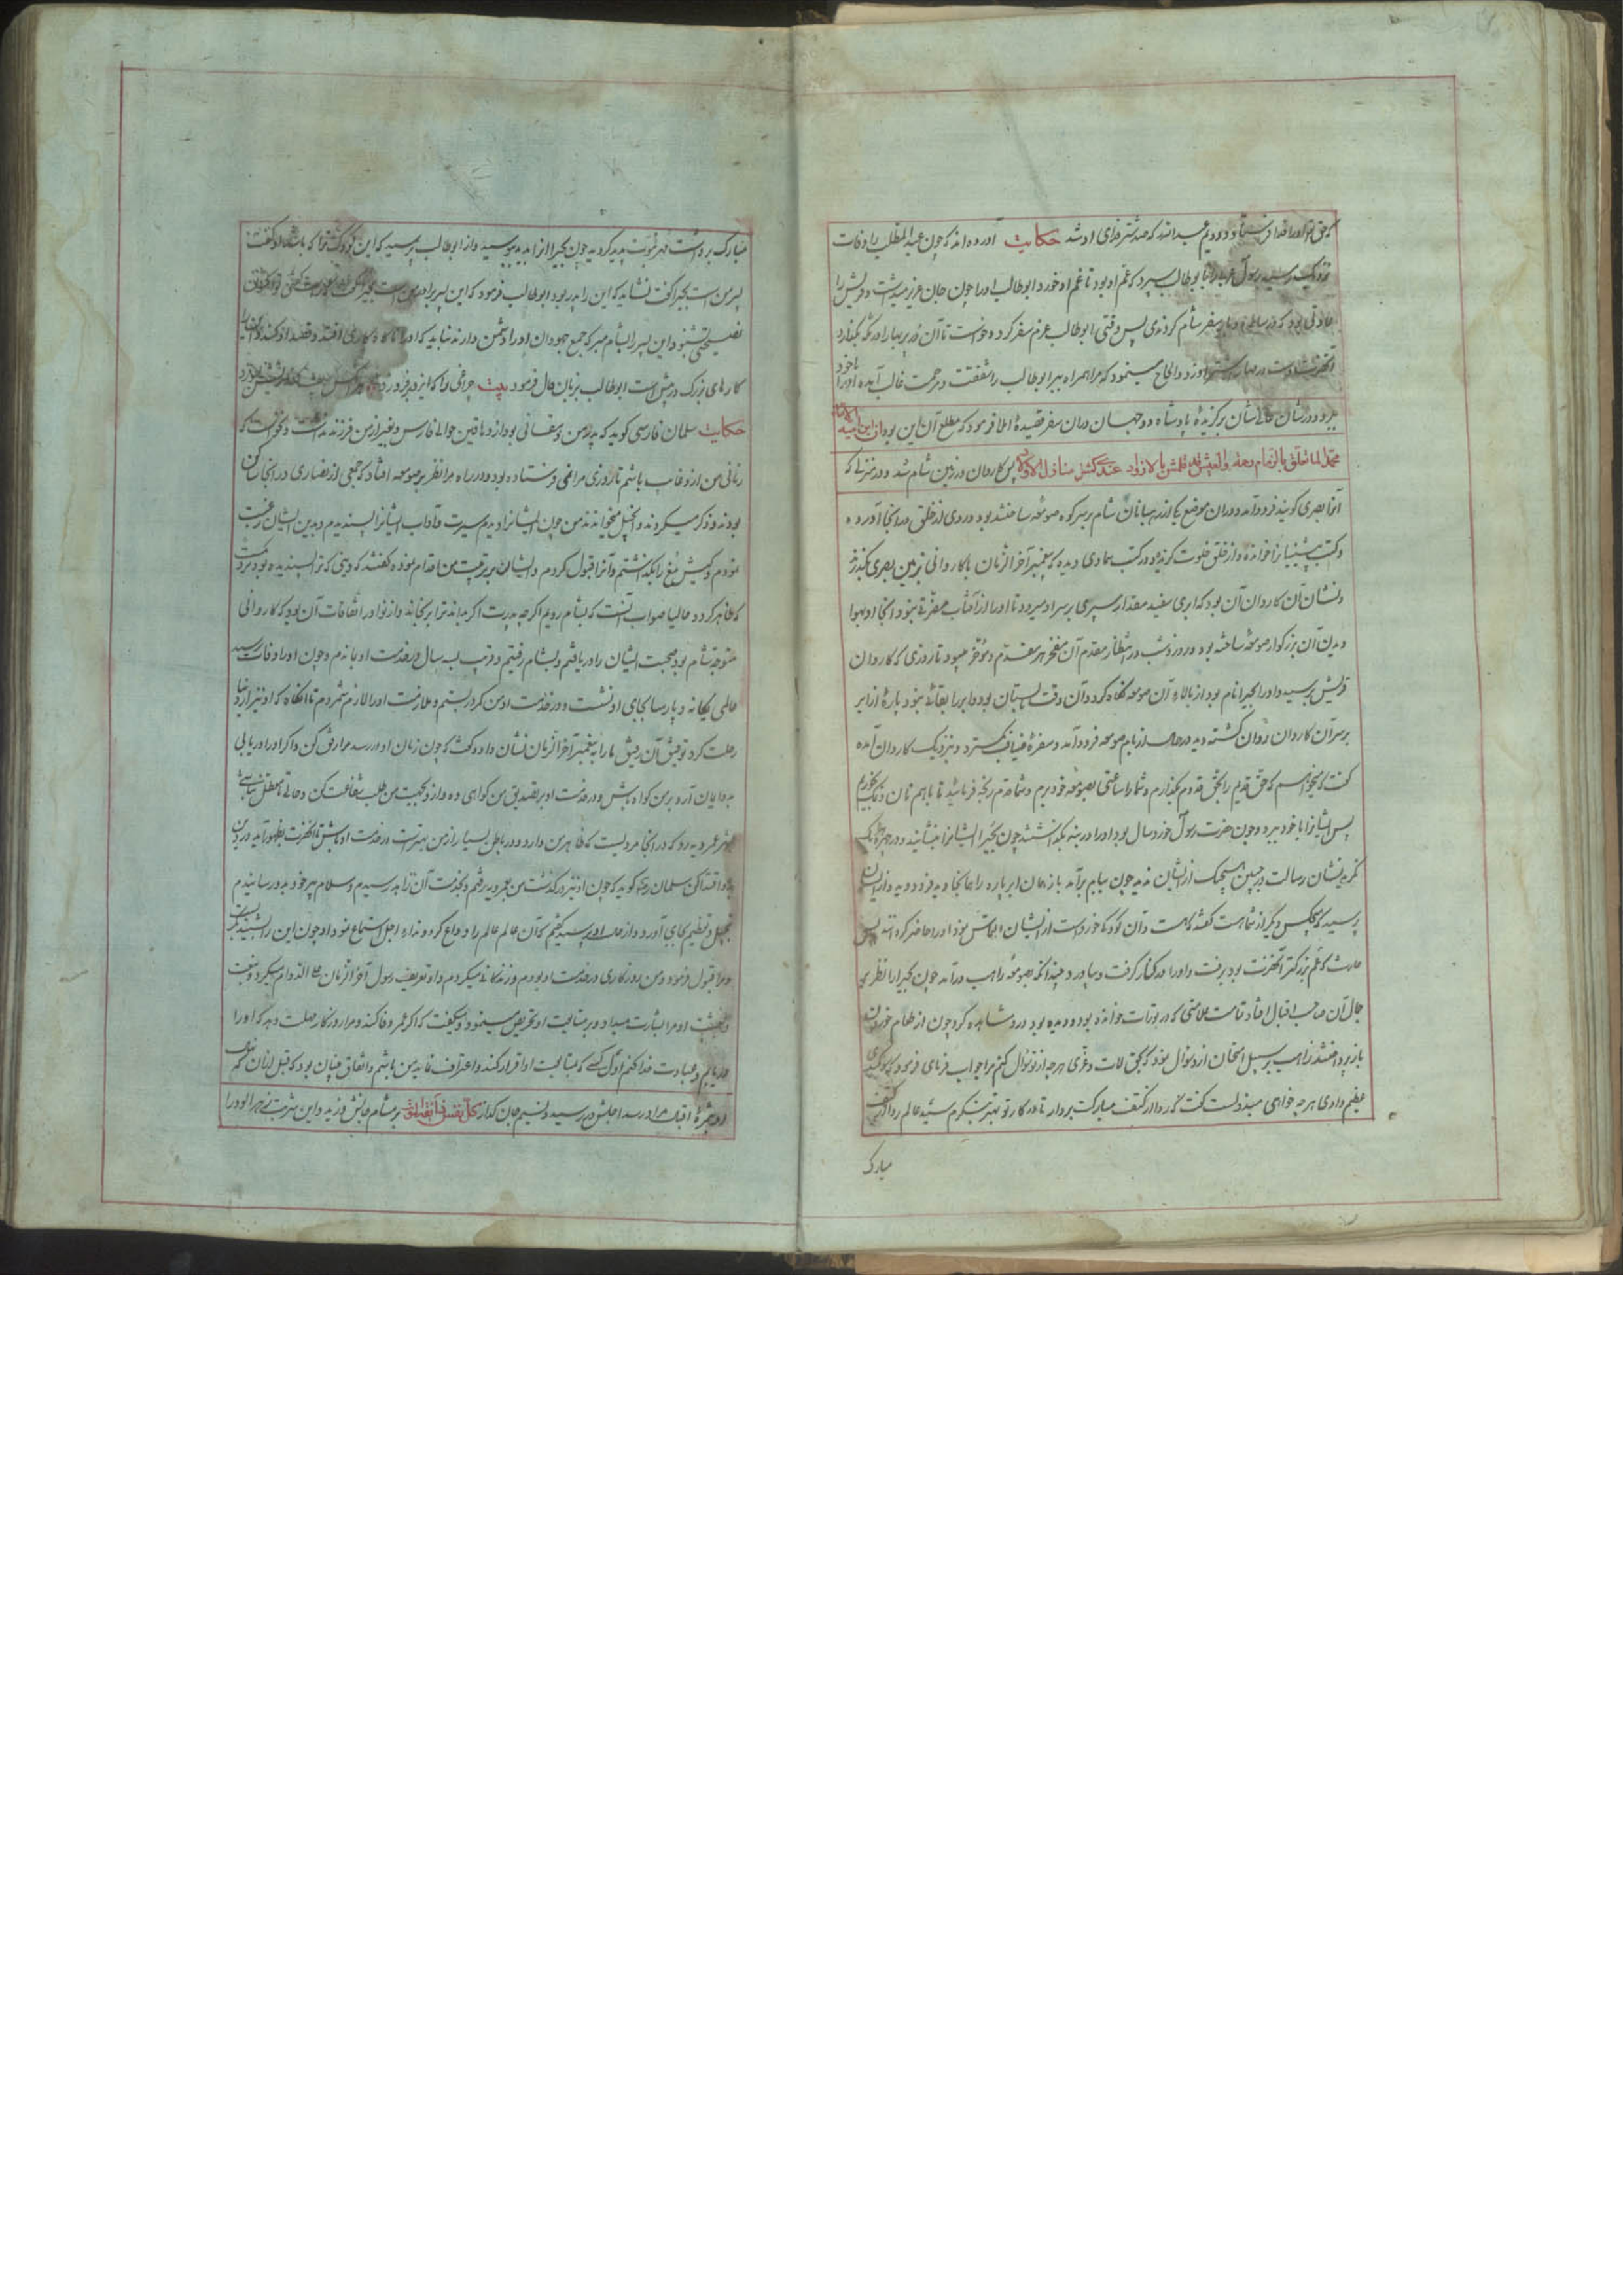 که حق تعالی او را فدا فرستاد و دویم عبدالله که صد شتر فدای او شد حکایت آورده‌اند که چون عبدالمطلب را وفات
نزدیک رسید رسول را با بوطالب سپرد که عم او بود تا غم او خورد ابوطالب او را چون جان عزیز میداشت و قریش را
عادتی بود که در سالی دو بار سفر شام کردندی پس وقتی ابوطالب عزم سفر کرد و خواست تا آن در یتیم را در مکه بگذارد
آنحضرت دست در مهار شتر او زد و الحاح مینمود که مرا همراه ببر ابوطالب را شفقت و مرحمت غالب آمده او را با خود
ببرد و در شان عالیشان برگزیده پادشاه دو جهان در آن سفر قصیده املا فرمود که مطلع آن این بود ان ابن آمنة الامین
محمد لما تعلق بالزمام رحمته والعیش قد قلصن بالازواد پس کاروان در زمین شام شد و در منزلی که
آنرا بصری گویند فرود آمد و در آن موضع یکی از رهبانان شام بر سر کوه صومعه ساخته بود و روی از خلق در آنجا آورده
و کتب پیشینیان را خوانده و از خلق خلوت گزیده و در کتب سماوی دیده که پیغمبر آخر الزمان با کاروانی بزمین بصری بگذرد
و نشان آن کاروان آن بود که ابری سفید مقدار سپری بر سر او میرود تا او را از آفتاب مضرتی نبود و آنجا او بهوا
دیدن آن بزرگوار صومعه ساخته بود و روز و شب در انتظار مقدم آن مفخر هر مقدم و مؤخر میبود تا روزی که کاروان
قریش برسید و او را بحیرا نام بود از بالای آن صومعه نگاه کرد و آن وقت تابستان بود و ابر را بقائی نبود پاره از ابر
بر سر آن کاروان روان گشته دید در حال از بام صومعه فرود آمد و سفره ضیافت بگسترد و بنزدیک کاروان آمده
گفت که میخواهم که حق قدیم را بحق قدوم بگذارم و شما را ساعتی بصومعه خود برم و شما قدم رنجه فرمائید تا باهم نان و نمک بخوریم
پس ایشانرا با خود ببرد و چون حضرت رسول خورد سال بود او را در بنه بگذاشتند چون بحیرا ایشانرا بنشانید و در چهره یک یک
نگریدنشان رسالت در جبین هیچیک از ایشان ندید چون ببام برآمد باز همان ابر پاره را همانجا دید فرود دوید و از ایشان
پرسید که هیچکس دیگر از شما هست گفتند که هست و آن کودک خورد است از ایشان التماس نمود او را حاضر کردند پس
حارث که عم بزرگتر آنحضرت بود برفت و او را در کنار گرفت و بیاورد چندانکه بصومعه راهب درآمد چون بحیرا را نظر بر
جمال آن صاحب اقبال افتاد تمامت علامتی که در تورات خوانده بود و دیده بود درو مشاهده کرد چون از طعام خوردن
باز پرداختند راهب بر سبیل امتحان ازو سؤال نمود که بحق لات و عزی هر چه از تو سؤال کنم مرا جواب فرمای فرمود که سوگندی
عظیم دادی هر چه خواهی مبذولست گفت که ردا از کتف مبارکت بردار تا در کار تو بهتر بنگرم سید عالم ردا از کتف
مبارک
مبارک برداشت مهر نبوت پدید گردید چون بحیرا آنرا بدید ببوسید و از ابوطالب پرسید که این کودک ترا که باشد او گفت
پسر من است بحیرا گفت نشاید که این را پدر بود ابوطالب فرمود که این پسر برادر من است بحیرا گفت که راست گفتی اکنون
نصیحتی بشنو و این پسر را بشام مبر که جمع جهودان او را دشمن دارند نباید که او را ناگاه کاری افتد و قصد او کنند
کارهای بزرگ در پیش است ابوطالب بزبان حال فرمود بیت چراغی را که ایزد برفروزد هر آنکس پف کند ریشش بسوزد
حکایت سلمان فارسی گوید که پدر من دهقانی بود از دهاقین حوالی فارس و بغیر از من فرزند نداشت و نخواست که
زمانی من ازو غایب باشم تا روزی مرا فرستاده بود و در راه مرا نظر بر صومعه افتاد که جمعی از نصاری در آنجا ساکن
بودند و ذکر میکردند و انجیل میخواندند من چون ایشانرا دیدم سیرت و آداب ایشانرا پسندیدم و بدین ایشان رغبت
نمودم و کیش مغ را بگذاشتم و آنرا قبول کردم و ایشان بر تربیت من اقدام نموده گفتند که دینی که ترا پسندیده بود
که ظاهر گردد حالیا صواب آنست که بشام رویم اگر چه پدرت اگر بداند ترا برنجاند و از نوادر اتفاقات آن بود که کاروانی
متوجه شام بود صحبت ایشان را دریافتم و بشام رفتم و قریب بسه سال در خدمت او بماندم و چون او را وفات رسید
عالمی یگانه و پارسا بجای او نشست و در خدمت او من کمر دربستم و ملازمت او را لازم شمردم تا آنگاه که او نیز از دنیا
رحلت کرد توفیق آن رفیق ما را به پیغمبر آخر الزمان نشان داد و گفت که چون زمان او در رسد مرا رفق کن و اگر او را دریابی
بدو ایمان آر و بر من گواه باش و در خدمت او بر تصدیق من گواهی ده و ازو بجهت من طلب شفاعت کن و حالی تا معطل نباشی
بشهر عموریه رو که در آنجا مردیست که ظاهر من دارد و در باطن بسیار از من بهتر است در خدمت او باش تا آنحضرت بظهور آید در دین
بدو اقتدا کن سلمان گوید که چون او نیز درگذشت من بعموریه رفتم و بخدمت آن ترسا برسیدم و سلام پیر خود بدو رسانیدم
تبجیل و تعظیم بجای آورد و از حال او پرسید گفتم که آن عالم عالم را وداع کرد و نداء اجل استماع نمود او چون این را بشنید بگریست
و مرا قبول فرمود و من روزگاری در خدمت او بودم و زندگانی میکردم و او تعریف رسول آخر الزمان علی الدوام میکرد و ببعثت
او مرا بشارت میداد و بر متابعت او تحریص مینمود و میگفت که اگر عمر وفا کند و مرا روزگار مهلت دهد که او را
دریابم و عبادت خدا کنم اول کسی که بمتابعت او اقرار کند و اعتراف نماید من باشم و اتفاق چنان بود که قبل از آن که
او بشرف اقبال مراد رسد اجلش در رسید و نسیم جان گداز کل نفس ذائقة الموت بر مشام جانش وزید و این شربت زهرآلود را